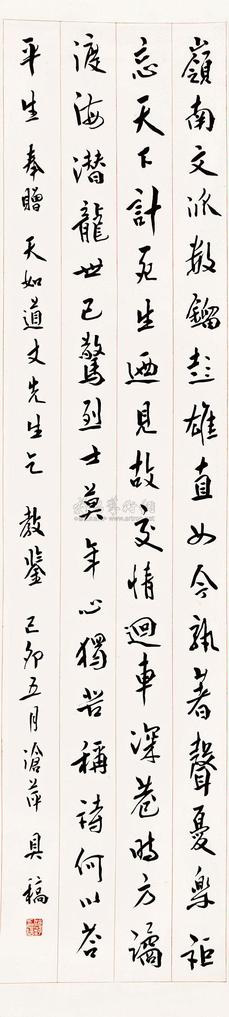 嶺南文派數鎦彭雄直如今孰著聲憂樂詎
忘天下計死生迺見故交情迴車深巷時方譎
渡海潛龍世已驚烈士莫年心獨苦稱詩何以荅
平生奉贈 天如道丈先生乞 教鑒 己卯五月滄萍具稿